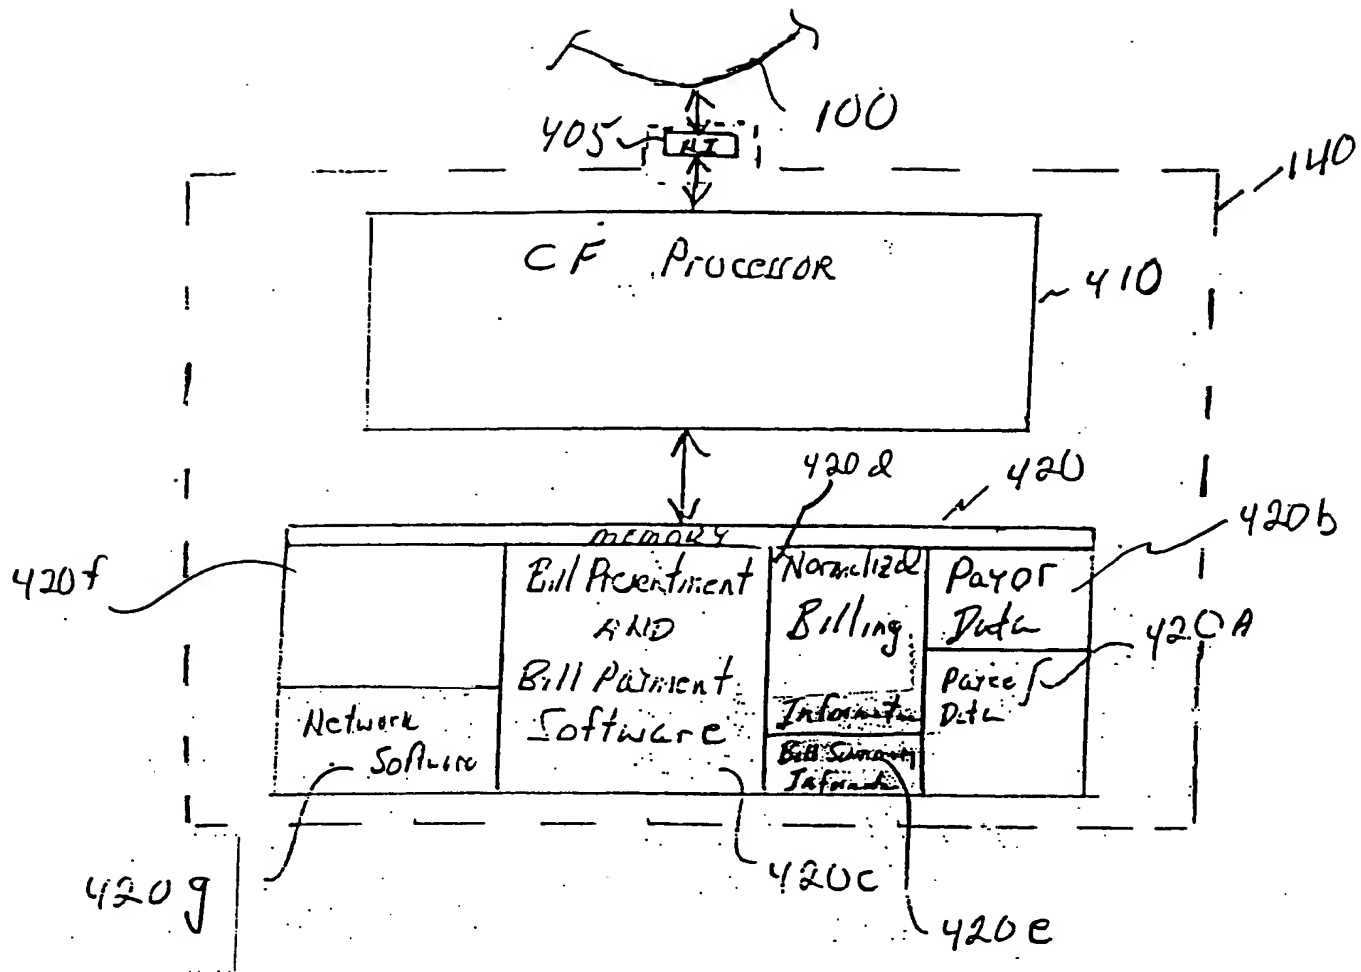 100
405
140
CF Processor
410
420d
420
memory
420b
420f
Bill Presentment
AND
Bill Paiment
Software
Normalized
Billing
Information
Payor
Data
420A
Payee
Data
Network
Software
Bill Summary
Information
420g
420c
420e